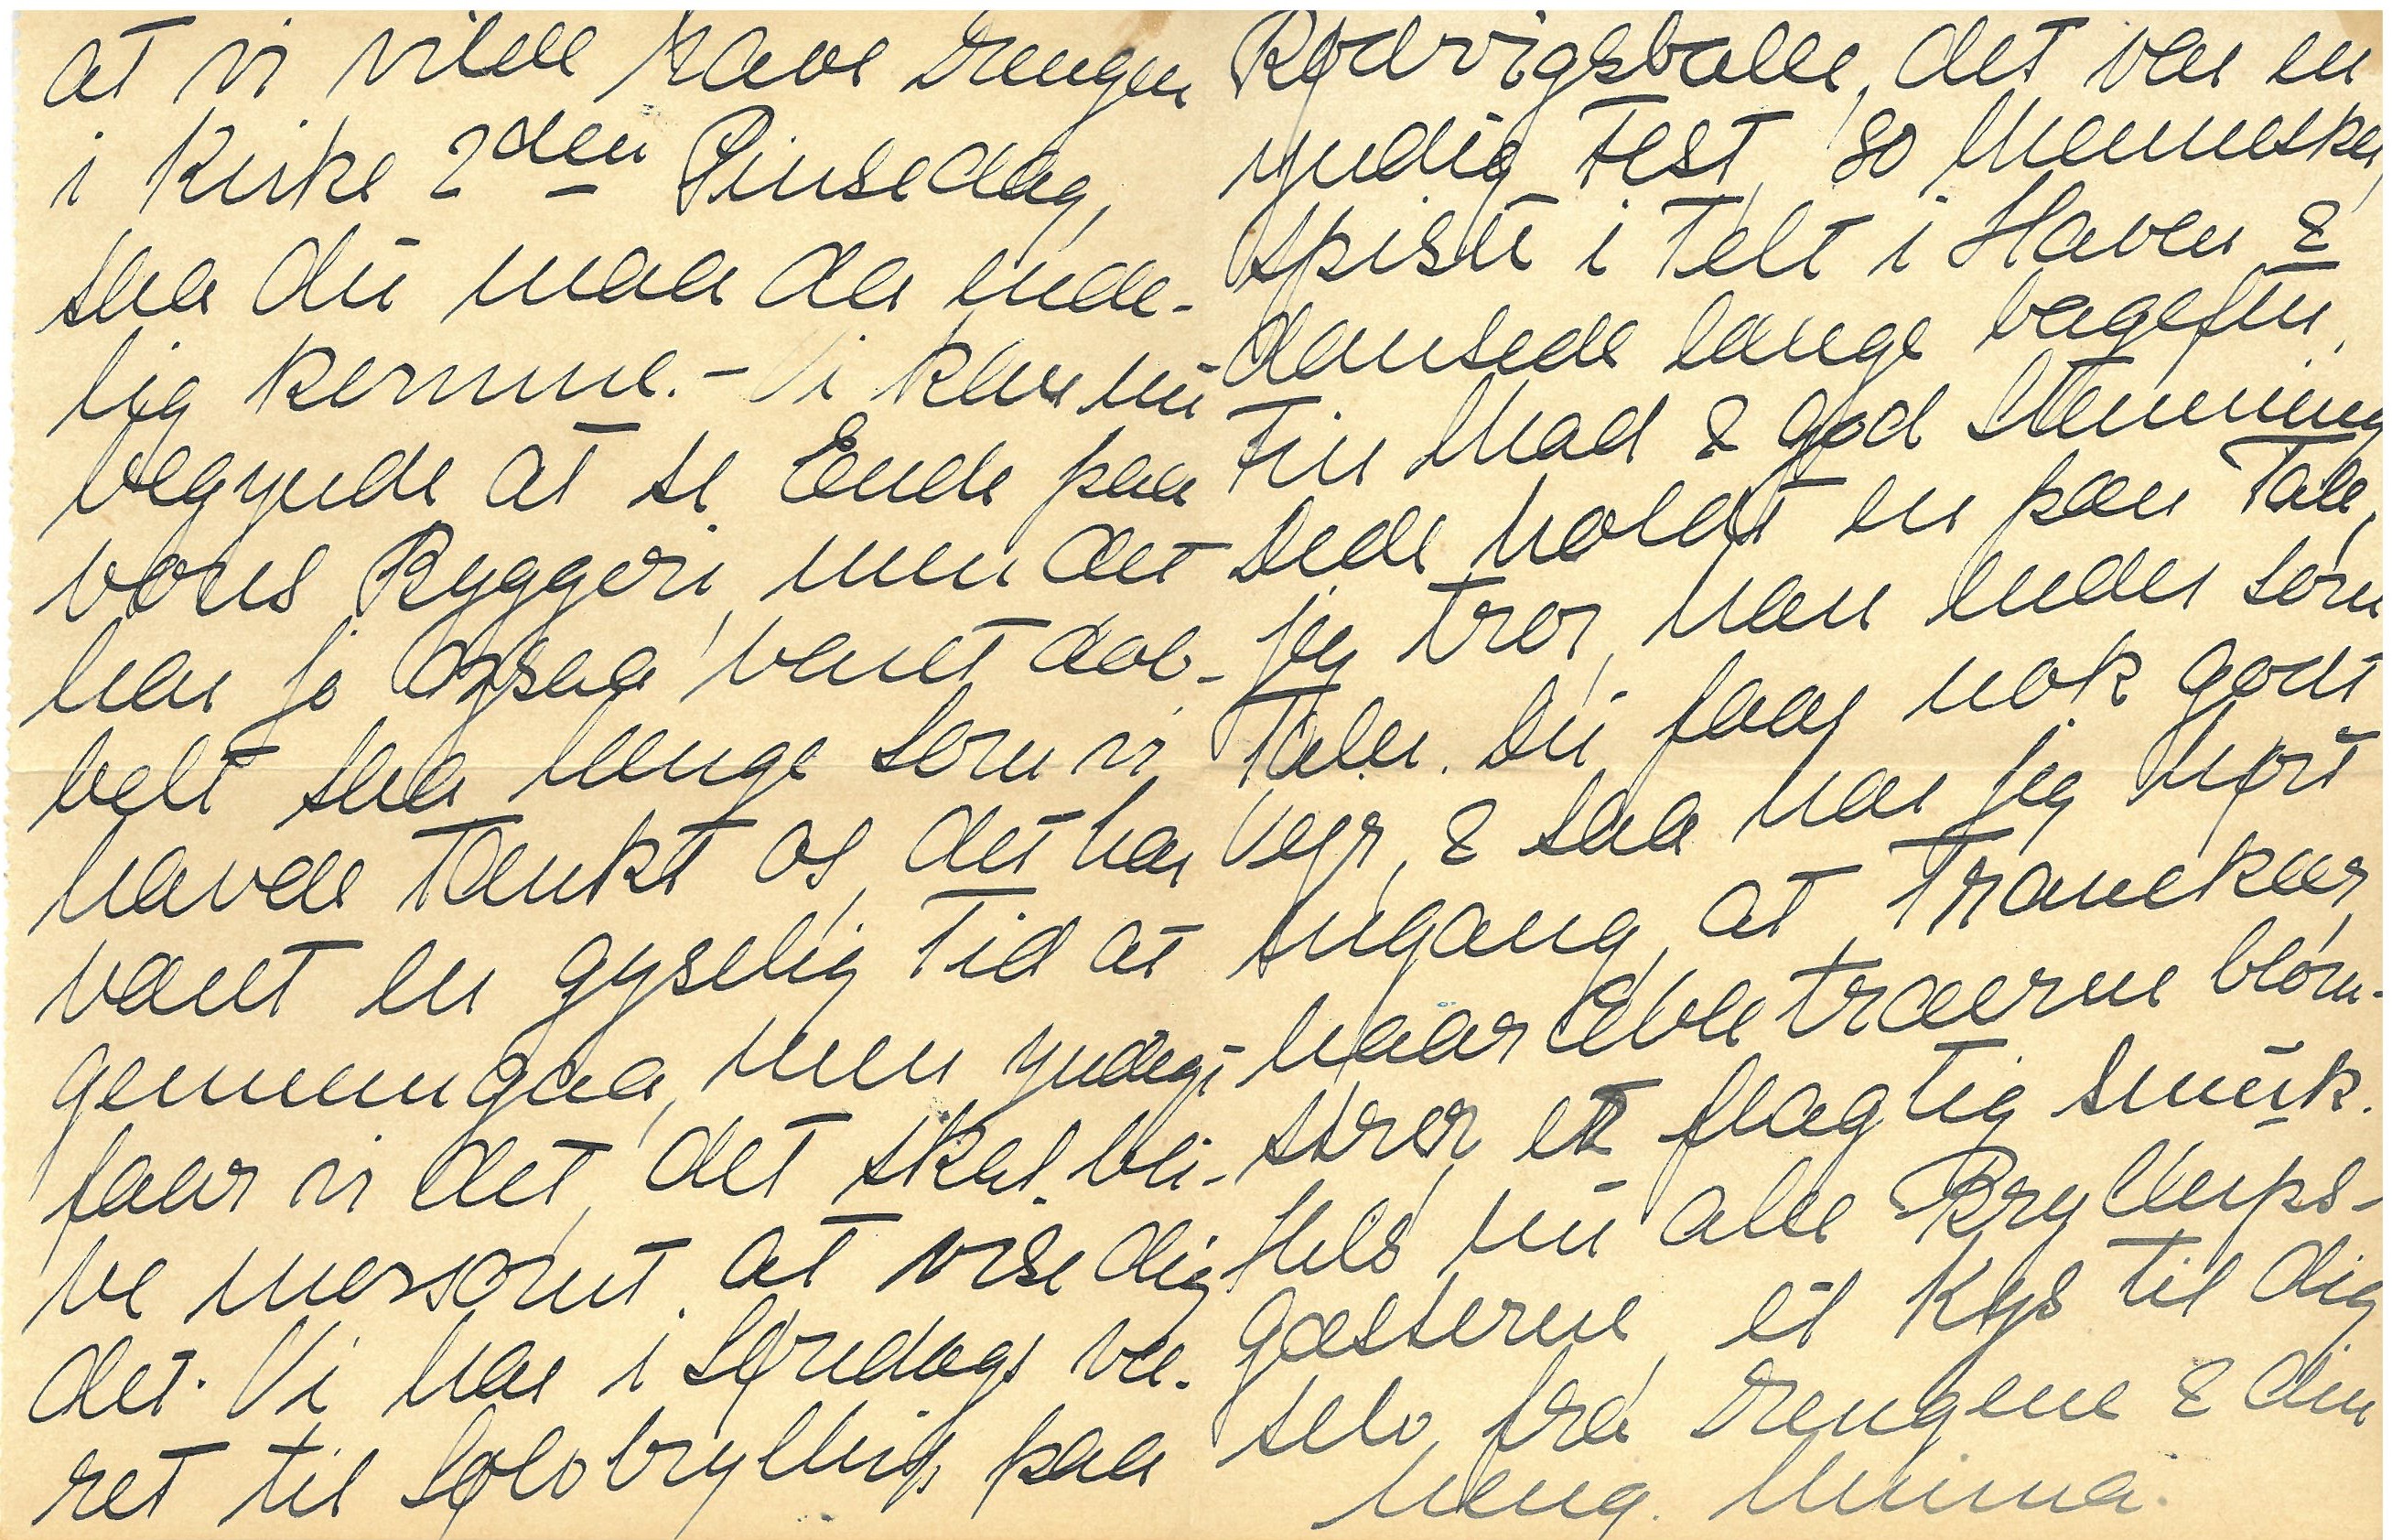 at vi vilde have Drengen
i Kirke 2den Pinsedag,
saa du maa da ende-
lig komme. - Vi kan nu
begynde at se Ende paa
vores Byggeri, men det
har jo ogsaa varet dob-
belt saa længe som vi
havde tænkt os, det har
været en gyselig Tid at
gennemgaa, men yndigt
faar vi det, det skal bli-
ve morsomt at vise dig
det. Vi har i Søndags væ-
ret til Sølvbryllup paa
Rødvigsballe, det var en
yndig Fest, 80 Mennesker,
spiste i Telt i Haven &
dansede længe bagefter.
Fin Mad & god Stemning
Dede holdt en pæn Tale,
jeg tror, han ender som
Taler. Du faar nok godt
Vejr, & saa har jeg hørt
engang, at Tranekær,
naar Æbletræerne blom-
strer, er pragtig smuk.
Hils nu alle Bryllups-
gæsterne, et Kys til dig
selv fra Drengene & din
heng. Mimma.